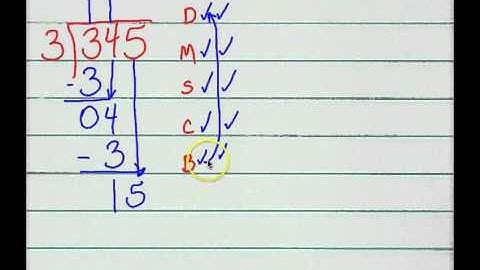 11 D ✓✓
3)345 M ✓✓
-3 S ✓✓
04 C ✓✓
-3 B ✓✓✓
15